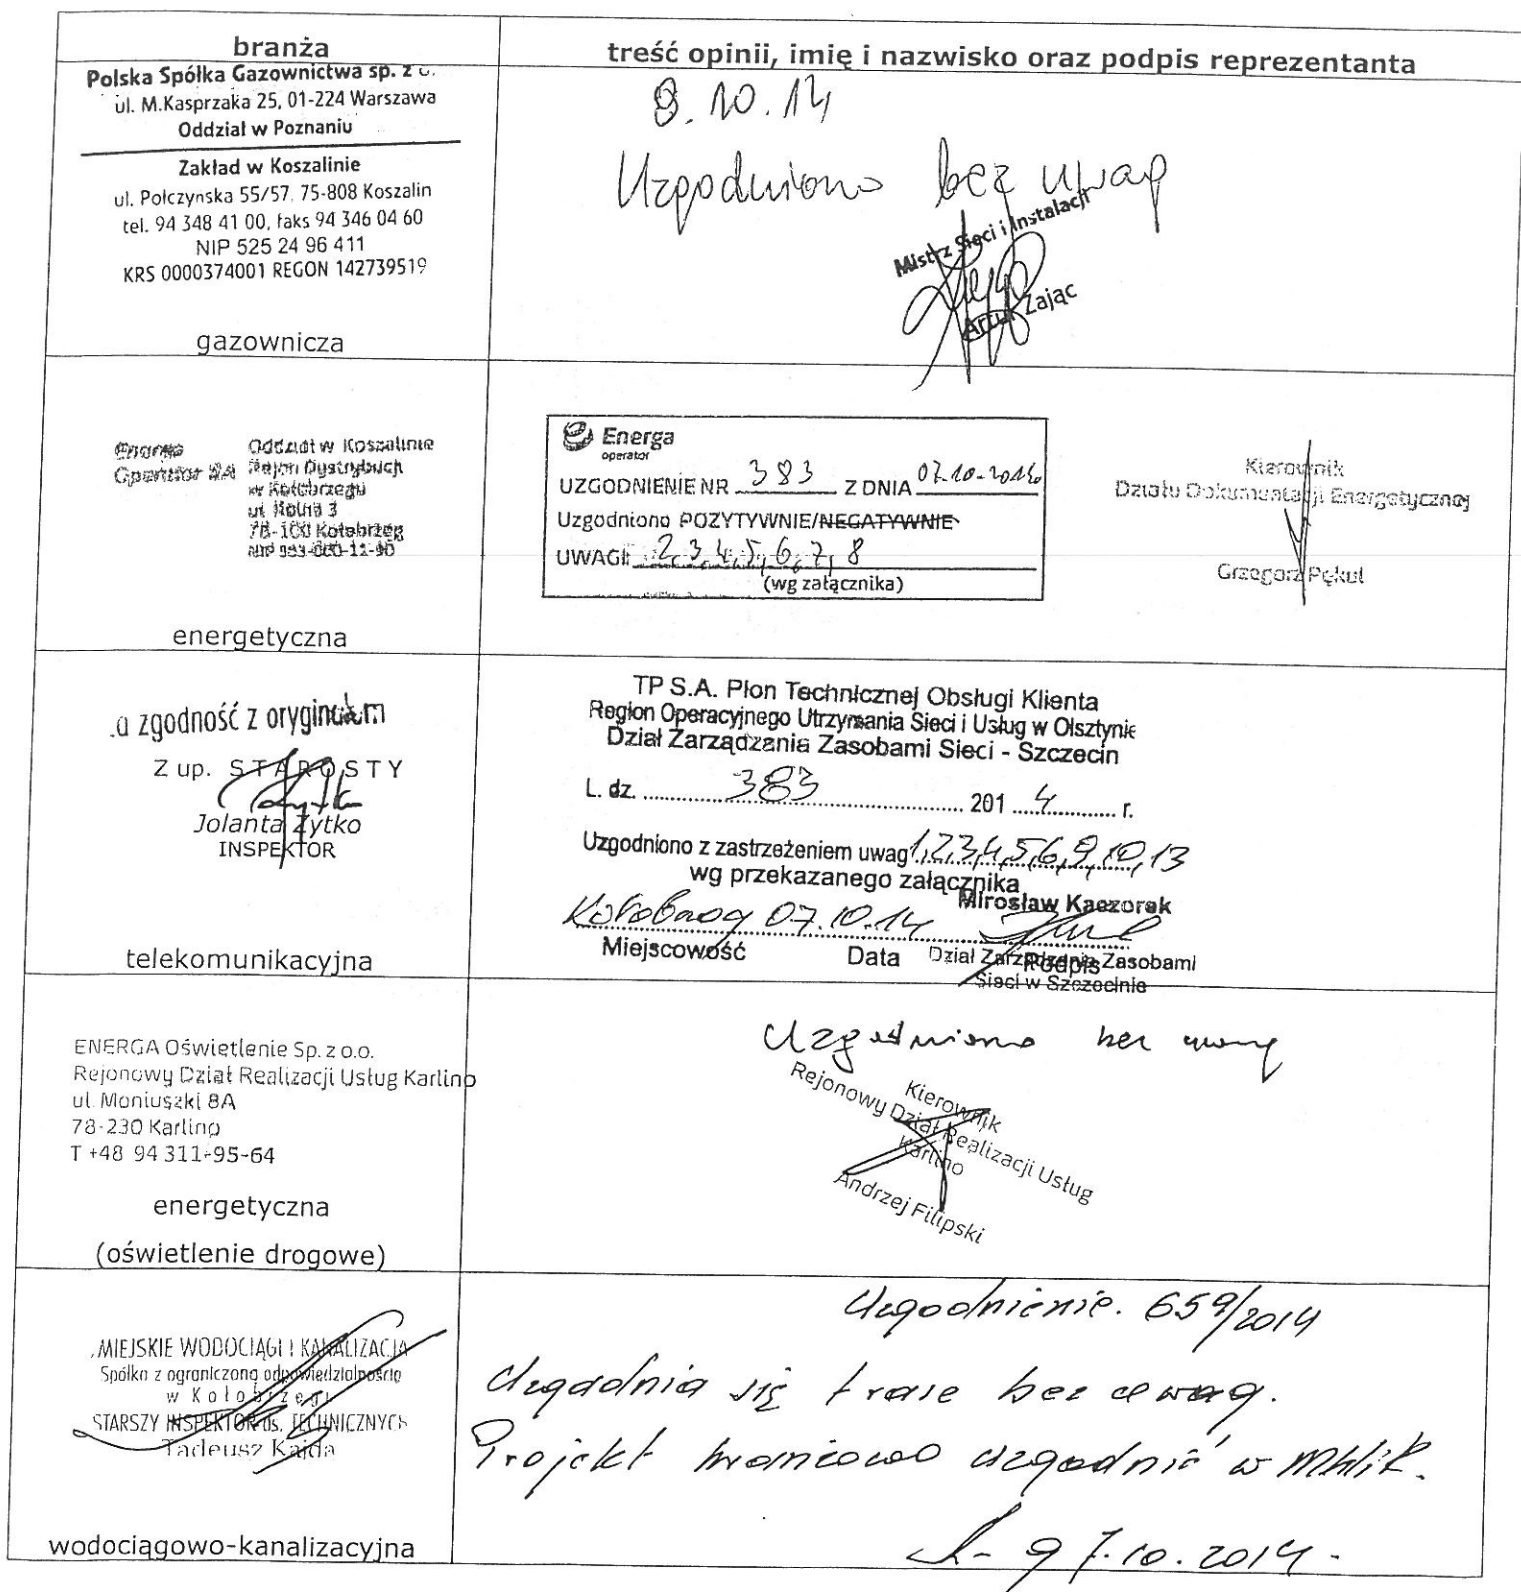 branża
treść opinii, imię i nazwisko oraz podpis reprezentanta
Polska Spółka Gazownictwa sp. z o.
ul. M.Kasprzaka 25, 01-224 Warszawa
Oddział w Poznaniu
Zakład w Koszalinie
ul. Połczyńska 55/57, 75-808 Koszalin
tel. 94 348 41 00, faks 94 346 04 60
NIP 525 24 96 411
KRS 0000374001 REGON 142739519
gazownicza
8.10.14
Uzgodniono bez uwag
Mistrz Sieci i Instalacji
Artur Zając
Energa
Operator SA
Oddział w Koszalinie
Rejon Dystrybucji
w Kołobrzegu
ul. Rolna 3
78-100 Kołobrzeg
NIP 583-000-11-90
energetyczna
Energa
operator
UZGODNIENIE NR 383 Z DNIA 07.10.2014
Uzgodniono POZYTYWNIE/NEGATYWNIE
UWAGI: 2,3,4,5,6,7,8
(wg załącznika)
Kierownik
Działu Dokumentacji Energetycznej
Grzegorz Pękul
a zgodność z oryginałem
Z up. STAROSTY
Jolanta Żytko
INSPEKTOR
telekomunikacyjna
TP S.A. Pion Technicznej Obsługi Klienta
Region Operacyjnego Utrzymania Sieci i Usług w Olsztynie
Dział Zarządzania Zasobami Sieci - Szczecin
L. dz. 383 2014 r.
Uzgodniono z zastrzeżeniem uwag 1,2,3,4,5,6,9,10,13
wg przekazanego załącznika
Mirosław Kaczorek
Kołobrzeg 07.10.14
Miejscowość Data Podpis
Dział Zarządzania Zasobami
Sieci w Szczecinie
ENERGA Oświetlenie Sp. z o.o.
Rejonowy Dział Realizacji Usług Karlino
ul. Moniuszki 8A
78-230 Karlino
T +48 94 311-95-64
energetyczna
(oświetlenie drogowe)
Uzgodniono bez uwag
Kierownik
Rejonowy Dział Realizacji Usług
Karlino
Andrzej Filipski
MIEJSKIE WODOCIĄGI I KANALIZACJA
Spółka z ograniczoną odpowiedzialnością
w Kołobrzegu
STARSZY INSPEKTOR ds. TECHNICZNYCH
Tadeusz Kajda
wodociągowo-kanalizacyjna
Uzgodnienie. 659/2014
Uzgadnia się trasę bez uwag.
Projekt branżowo uzgodnić w MWiK.
7.10.2014.